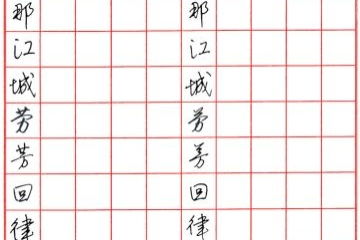 那 那
江 江
城 城
劳 劳
芳 芳
回 回
律 律